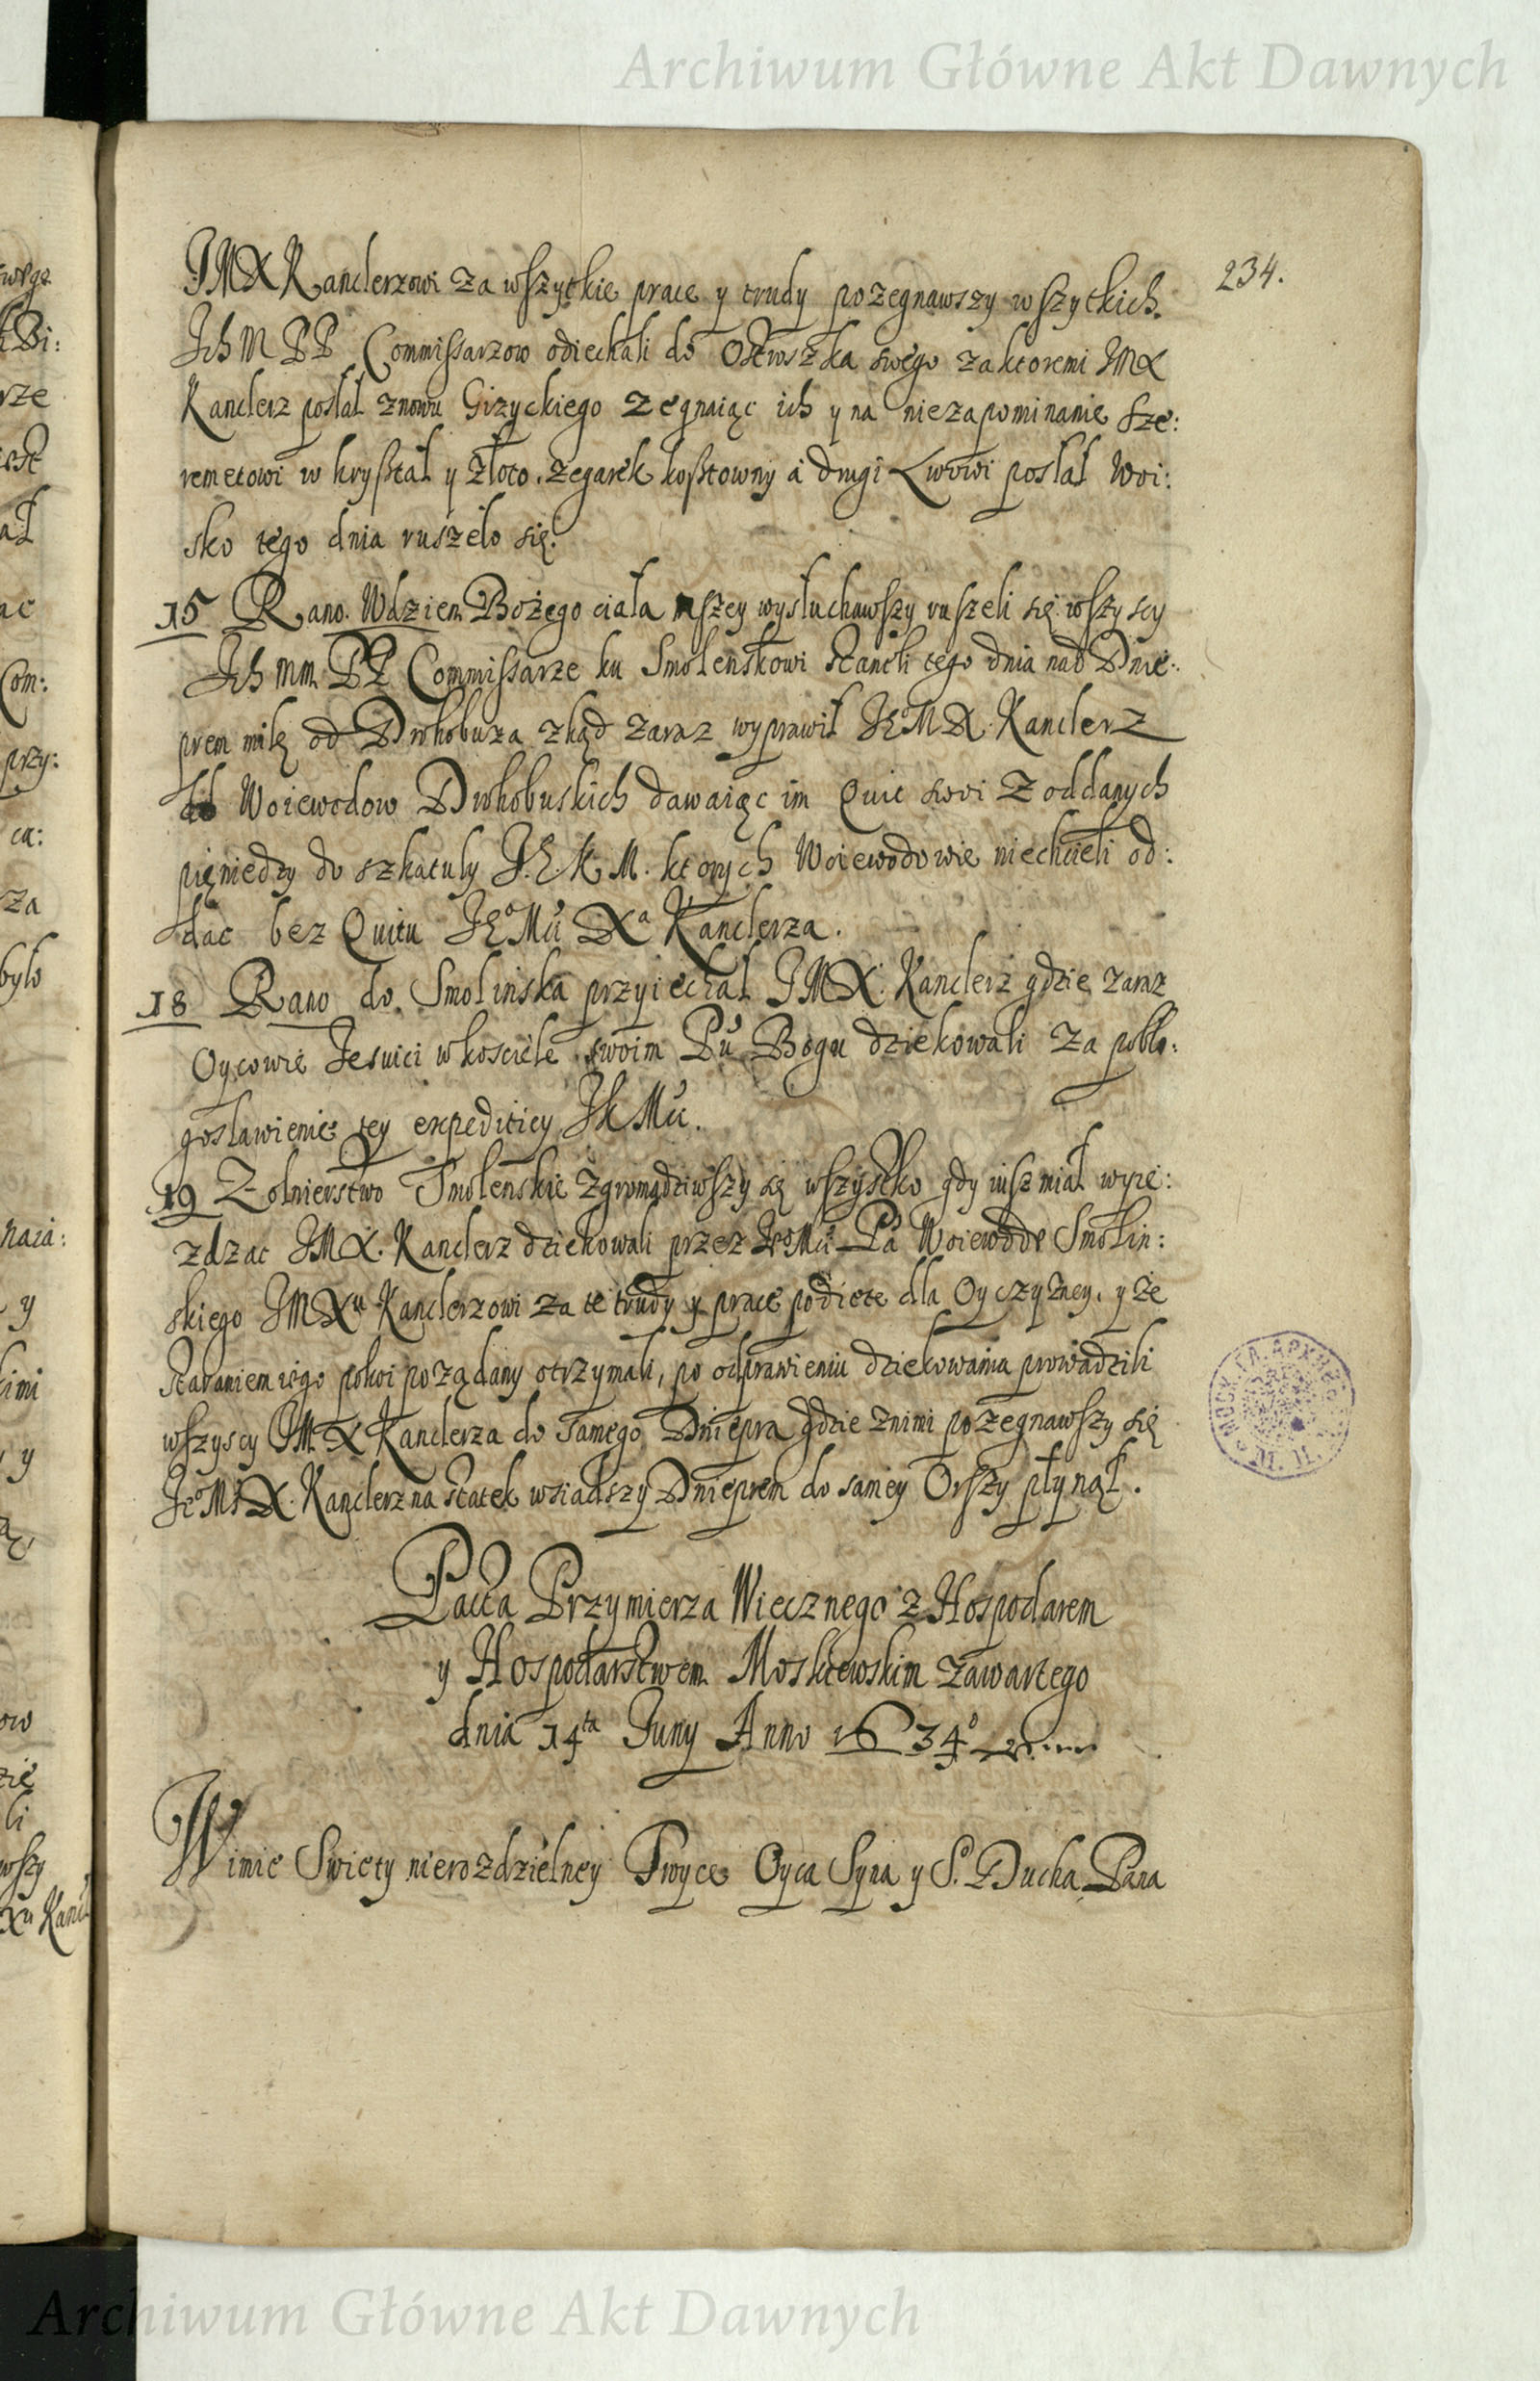 Archiwum Główne Akt Dawnych
234.
JMX Kanclerzowi za wszytkie prace y trudy pozegnawszy wszytkich
Ich M PP Commissarzow odiechali do Ostroszka swego za ktoremi JMX
Kanclerz posłał znowu Gizyckiego zegnaiąc ich y na niezapominanie Sze:
remetowi w krysztal y złoto. zegarek kosztowny á drugi Lwowi posłał Woi:
sko tego dnia ruszeło się.
15 Rano. W dzien Bożego ciała mszey wysłuchawszy ruszeli się wszyscy
Ich mm. PP Commissarze ku Smoleńskowi staneli tego dnia nad Dnie:
prem milę od Drohobuza zkąd zaraz wyprawił JEoMX. Kanclerz
do Woiewodow Drohobuskich dawaiąc im Quit swoi z oddanych
pięniedzy do szkatuły J.E.K.M. ktorych Woiewodowie niechcieli od:
dac bez Quitu JEoMći Xa Kanclerza.
18 Rano do Smolińska przyiechał JMX. Kanclerz gdzie zaraz
Oycowie Jesuici w kosciele swoim Pu Bogu dziekowali za pobło:
gosławienie tey expeditiey JKMći.
19 Zolnierstwo Smolenskie zgromadziwszy się wszystko gdy iusz miał wyie:
zdzac JMX. Kanclerz dziekowali przez JeoMći Pa Woiewode Smolin:
skiego JMXu Kanclerzowi za te trudy y prace podiete dla Oyczyzney. y że
staraniem iego pokoi pożądany otrzymali, po odprawieniu dziekowania prowadzili
wszyscy JMX Kanclerza do samego Dniepra gdzie znimi pozegnawszy się
JeoMśX. Kanclerz na statek wsiadszy Dnieprem do samey Orszy płynął.
Pacta Przymierza Wiecznego z Hospodarem
y Hospodarstwem Moskiewskim zawartego
dnia 14ta Juny Anno 1634o
W imie Swięty nierozdzielney Troyce Oyca Syna y S. Ducha Pana
Archiwum Główne Akt Dawnych